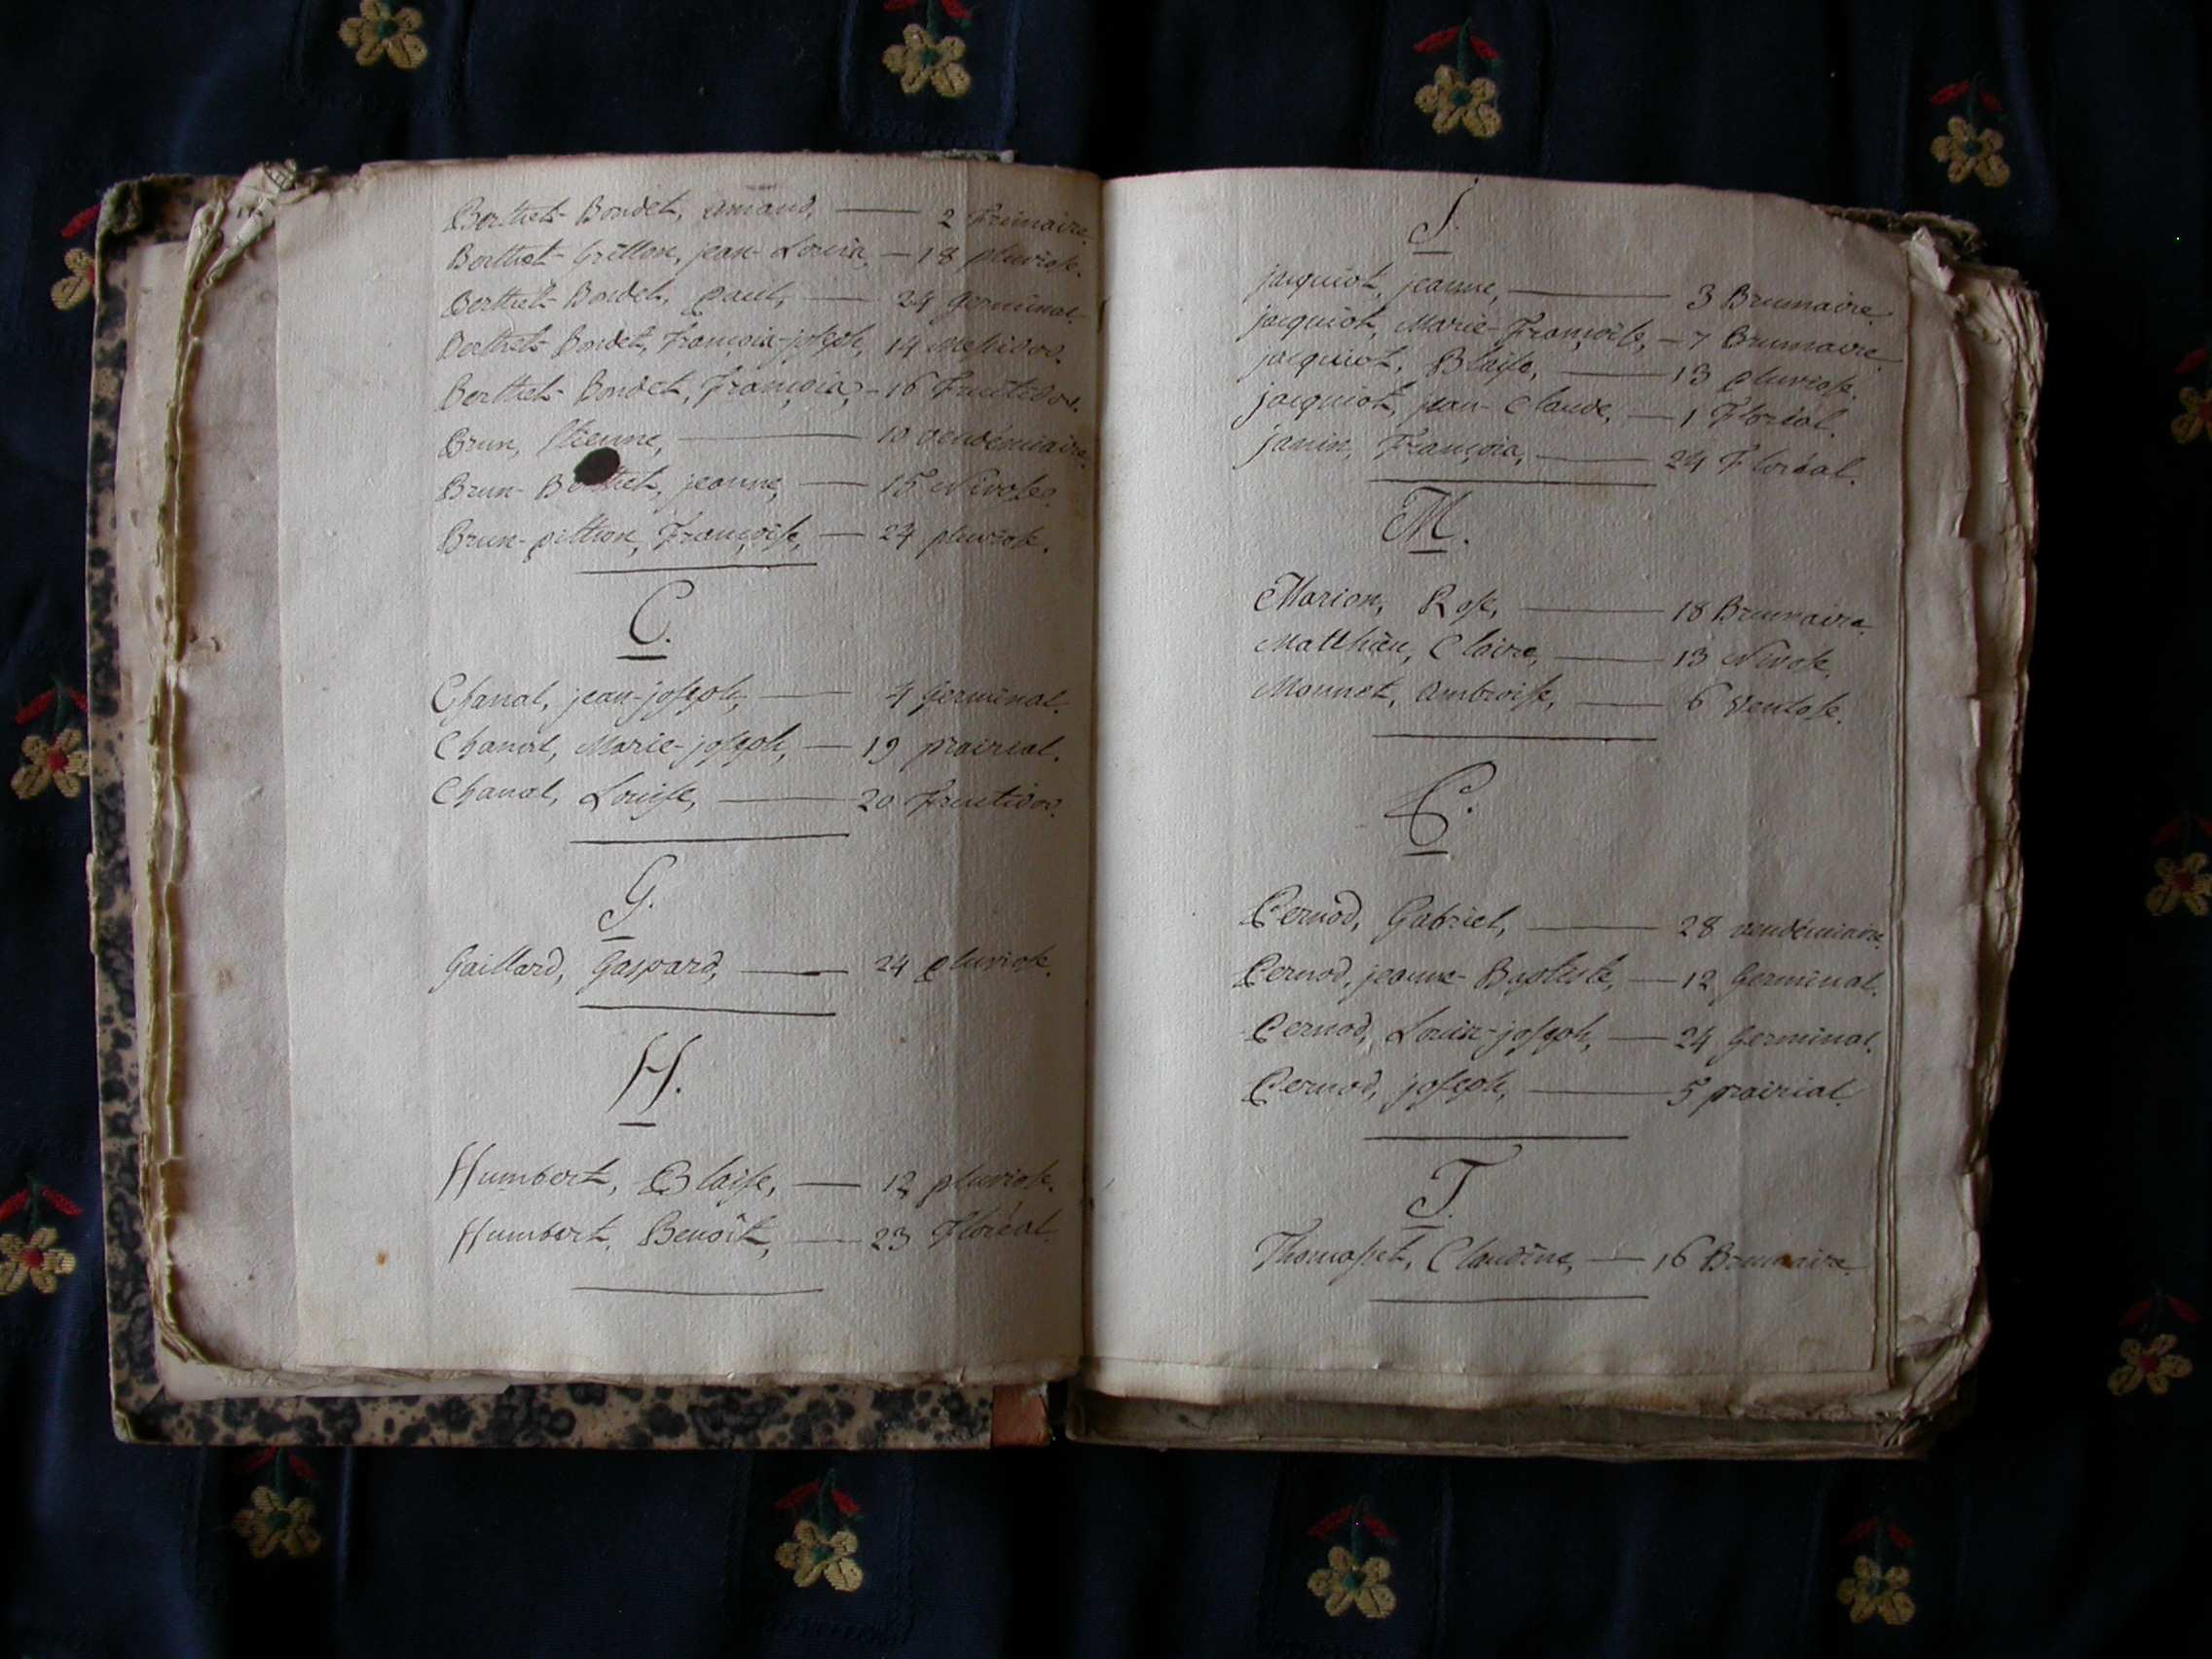 Berthet-Bondet, Amand, — 2 Frimaire.
Berthet-Grillon, jean-Louis, — 18 pluviose.
Berthet-Bondet, Paul, — 24 Germinal.
Berthet-Bondet, François-joseph, 14 Messidor.
Berthet-Bondet, François, — 16 Fructidor.
Brun, Etienne, — 10 vendémiaire.
Brun-Berthet, jeanne, — 15 Nivose.
Brun-pittion, Françoise, — 24 pluviose.
C.
Chanal, jean-joseph, — 4 Germinal.
Chanal, Marie-joseph, — 19 prairial.
Chanal, Louise, — 20 Fructidor.
G.
Gaillard, Gaspard, — 24 pluviose.
H.
Humbert, Blaise, — 12 pluviose.
Humbert, Benoît, — 23 Floréal.
J.
jacquiot, jeanne, — 3 Brumaire.
jacquiot, Marie-Françoise, — 7 Brumaire.
jacquiot, Blaise, — 13 pluviose.
jacquiot, jean-Claude, — 1 Floréal.
janin, François, — 24 Floréal.
M.
Marion, Rose, — 18 Brumaire.
Matthieu, Claire, — 13 Nivose.
Monnet, Ambroise, — 6 Ventose.
P.
Pernod, Gabriel, — 28 vendémiaire.
Pernod, jeanne-Baptiste, — 12 Germinal.
Pernod, Louis-joseph, — 24 Germinal.
Pernod, joseph, — 5 prairial.
T.
Thomasset, Claudine, — 16 Brumaire.